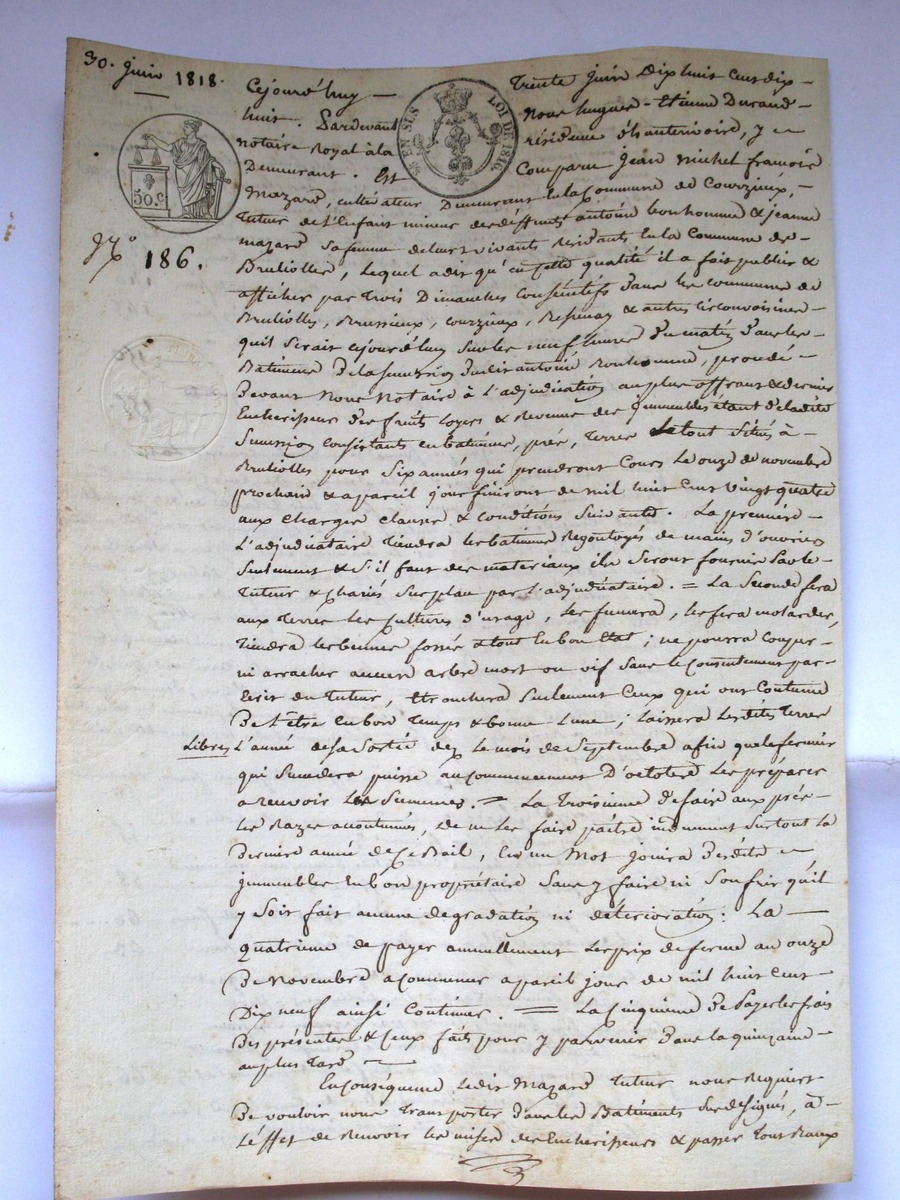 30. juin 1818.
Cejourd'huy trente juin Dix huit cent dix
huit. Pardevant nous hugues-Etienne Durand
notaire Royal à la résidence d'y
Demeurant. Est Comparu jean michel françois
Mazard, cultivateur Demeurant En la Commune de Courzieux,
tuteur de l'Enfant mineur des deffunts antoine bonhomme & jeanne
mazard sa femme de leurs vivants Residants En la Commune de
Bruliolles, Lequel a dit qu'en cette qualité il a fait publier &
afficher par trois Dimanches Conséćutifs dans les communes de
Brulliolles, Brussieux, Courzieux, Besenay & autres circonvoisines
qu'il serait cejourd'huy sur les neuf heures du matin dans les
Batiments De la succession dudit antoine Bonhomme, procedé
Devant Nous Notaire à L'adjudication au plus offrant & dernier
Encherisseur des fruits loyers & Revenus des immeubles étant de la dite
Succession Consistants en batiments, prés, terres Le tout Situés à
Brulliolles pour Six années qui prendront Cours Le onze de novembre
prochain & a pareil jour finiront de mil huit cent vingt quatre
aux Charges clauses & conditions suivantes. La premiere
L'adjudicataire Tiendra les batiments Regoutoyés de mains d'ouvriers
Seulement & s'il faut des materiaux ils seront fournis par le
tuteur & chariés Sur place par l'adjudicataire. = La Seconde fera
aux terres les cultures d'usage, les fumera, les fera
Tiendra les bennes fossés & tout En bon Etat; ne pourra Couper
ni arracher aucuns arbres mort ou vif sans le Consentement par
Ecrit du tuteur, Etronchera Seulement Ceux qui ont Coutume
De l'être en bon Temps & bonne Lune; laissera Lesdites Terres
Libres L'année de sa Sortie dez Le mois de Septembre afin que le fermier
qui succedera puisse au commencement D'octobre Les préparer
a recevoir Les Semences. = La troisieme De faire aux prés
les Razes accoutumés, de ne les faire paître indument surtout la
Derniere année de Ce Bail, En un Mot jouira Desdits
immeubles En bon propriétaire Sans y faire ni Souffrir qu'il
y Soit fait aucune dégradation ni détérioration. La
quatrieme de payer annuellement Le prix de ferme au onze
De Novembre a Commencer a pareil jour de mil huit cent
Dix neuf ainsi Continuer. = La Cinquieme De Payer les frais
Des présentes & Ceux faits pour y parvenir Dans la quinzaine
au plus tard
En Conséquence Ledit Mazard Tuteur nous Requiert
De vouloir nous Transporter dans les Batiments Sus designés, à
L'éffet de Recevoir les mises des Encherisseurs & passer tous Baux
N° 186.
50.c
EN SUS
LOI DE 1816.